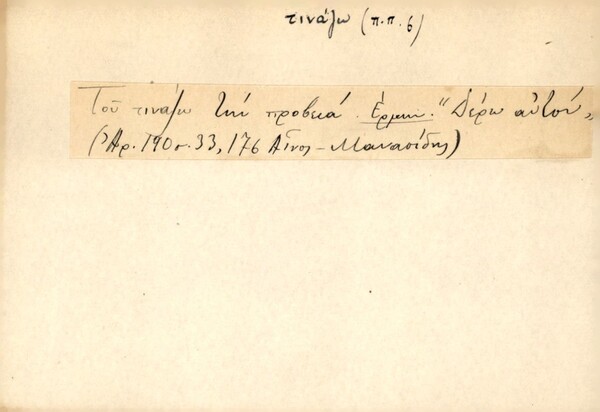 τινάζω (π.π. 6)
Τοῦ τινάζω τὴν προβειά. Ἑρμην. "Δέρω αὐτόν„
(Ἀρ. 190 σ. 33, 176 Αἶνος - Μανασσείδης)